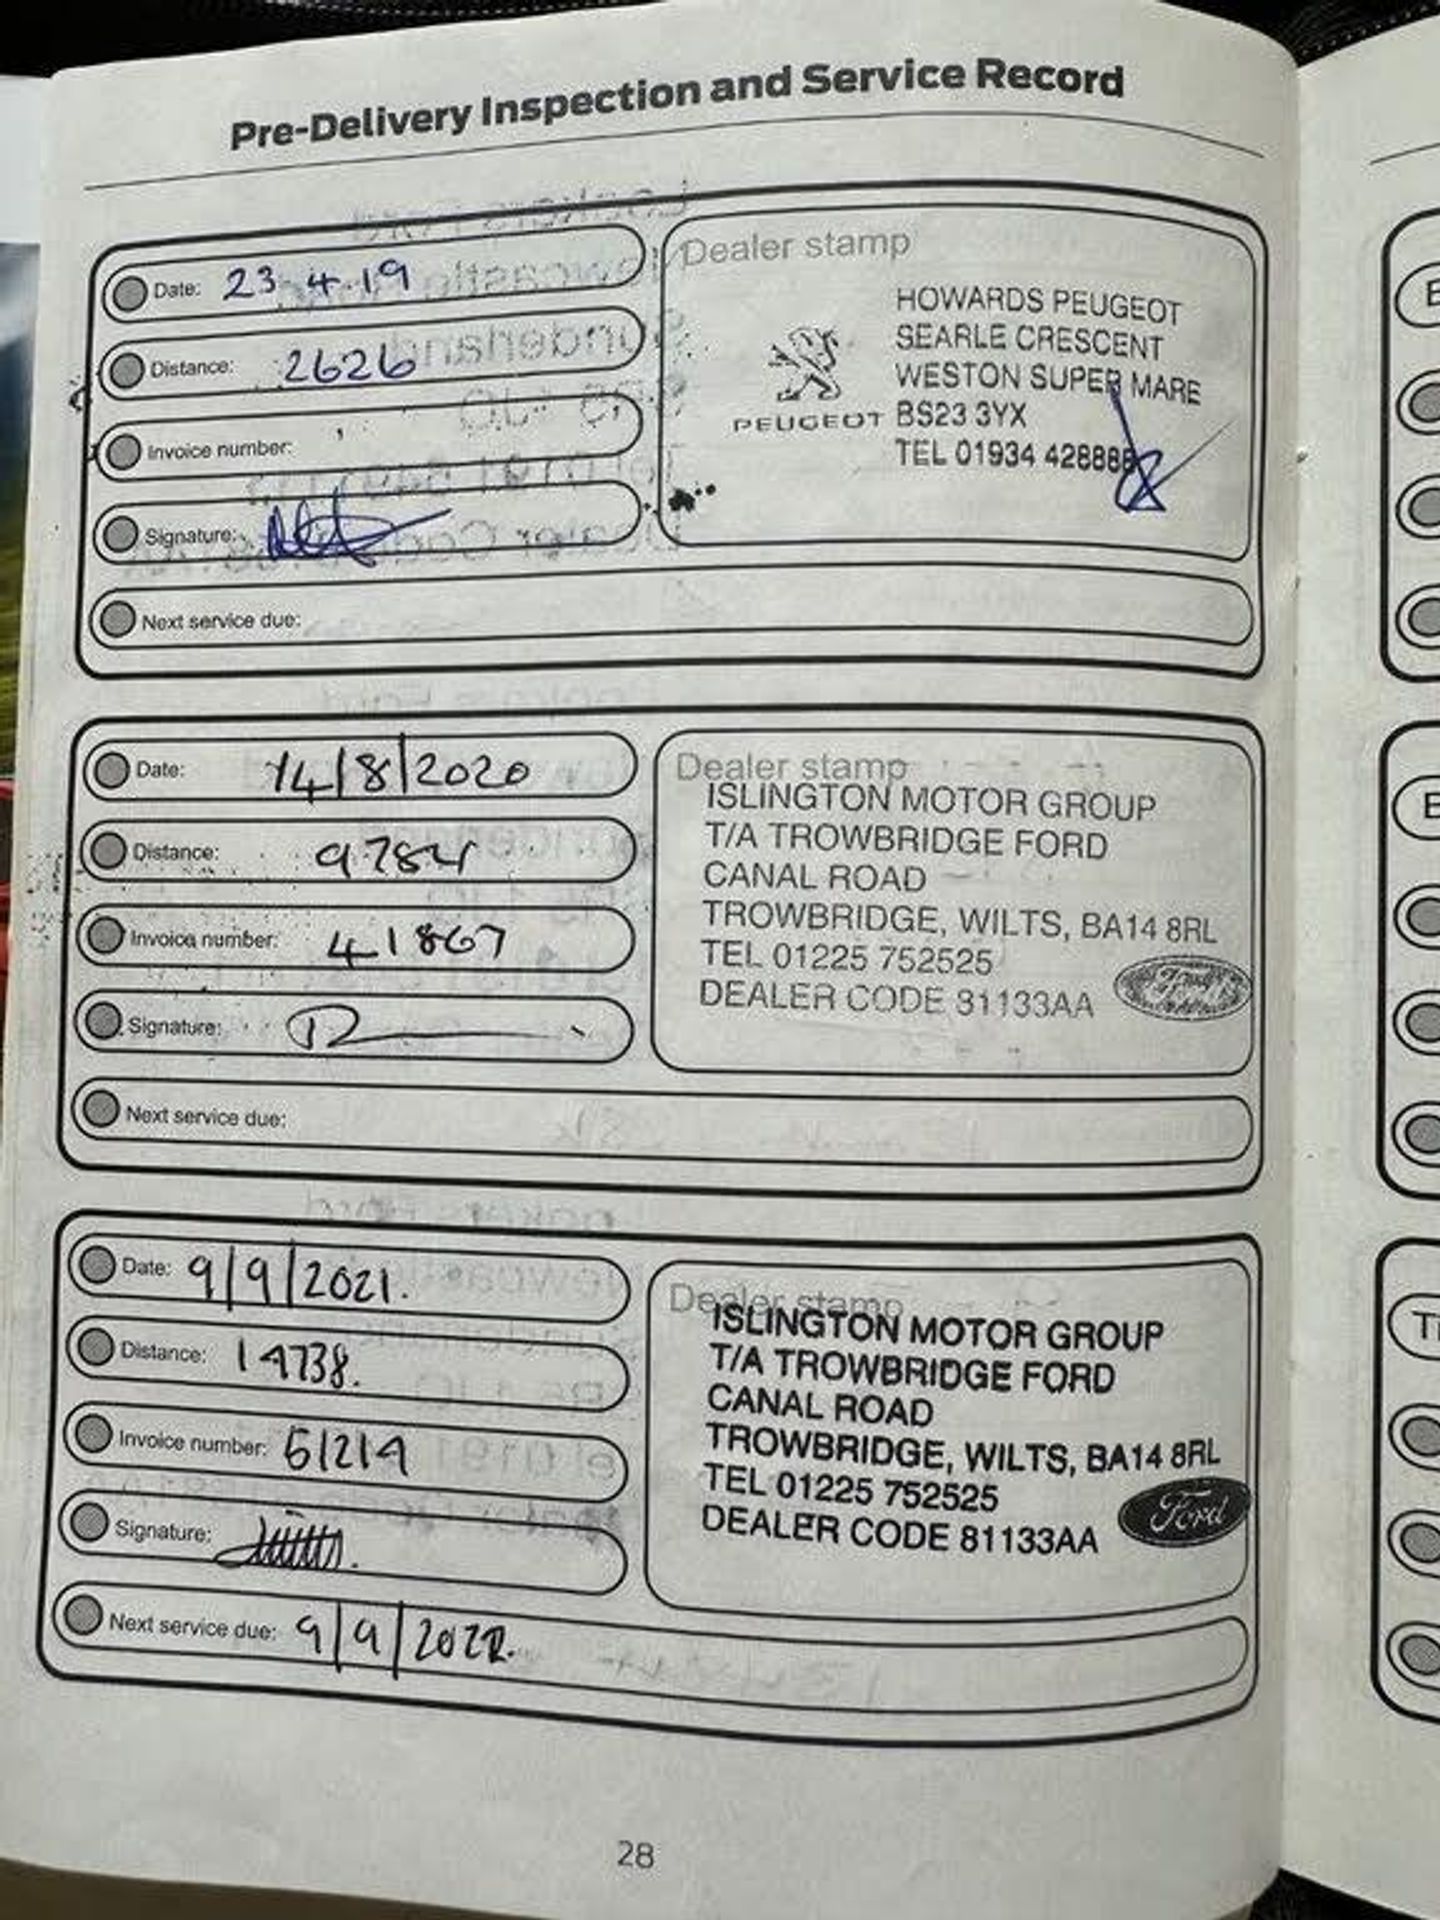 Pre-Delivery Inspection and Service Record
Date: 23.4.19
Distance: 2626
Invoice number:
Signature:
Next service due:
Dealer stamp
PEUGEOT
HOWARDS PEUGEOT
SEARLE CRESCENT
WESTON SUPER MARE
BS23 3YX
TEL 01934 428888
Date: 14/8/2020
Distance: 9784
Invoice number: 41867
Signature:
Next service due:
Dealer stamp
ISLINGTON MOTOR GROUP
T/A TROWBRIDGE FORD
CANAL ROAD
TROWBRIDGE, WILTS, BA14 8RL
TEL 01225 752525
DEALER CODE 81133AA
Ford
Date: 9/9/2021.
Distance: 14738.
Invoice number: 51219
Signature:
Next service due: 9/9/2022.
Dealer stamp
ISLINGTON MOTOR GROUP
T/A TROWBRIDGE FORD
CANAL ROAD
TROWBRIDGE, WILTS, BA14 8RL
TEL 01225 752525
DEALER CODE 81133AA
Ford
28